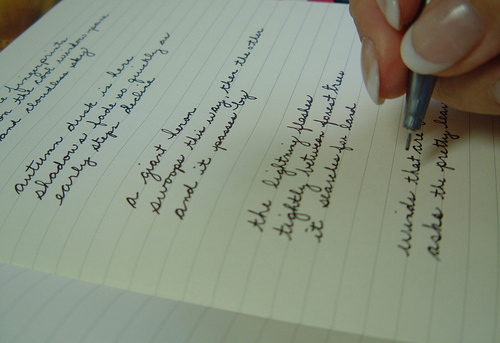 a fingerprint
on the cool window pane
one cloudless sky
autumn dusk is here
shadows fade so quickly as
early steps decide
a giant broom
swoops this way, then the other
and it passes by
the lightning flashes
tightly between forest trees
it searches for land
winds that are
asks the pretty leaf